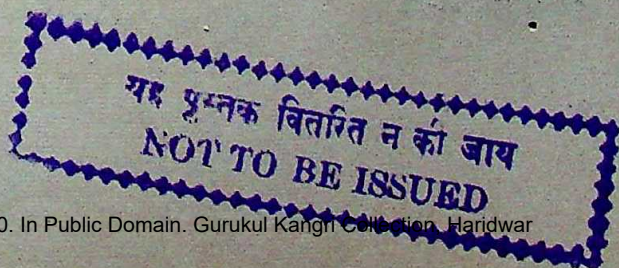 यह पुस्तक वितरित न की जाय
NOT TO BE ISSUED
0. In Public Domain. Gurukul Kangri Collection, Haridwar